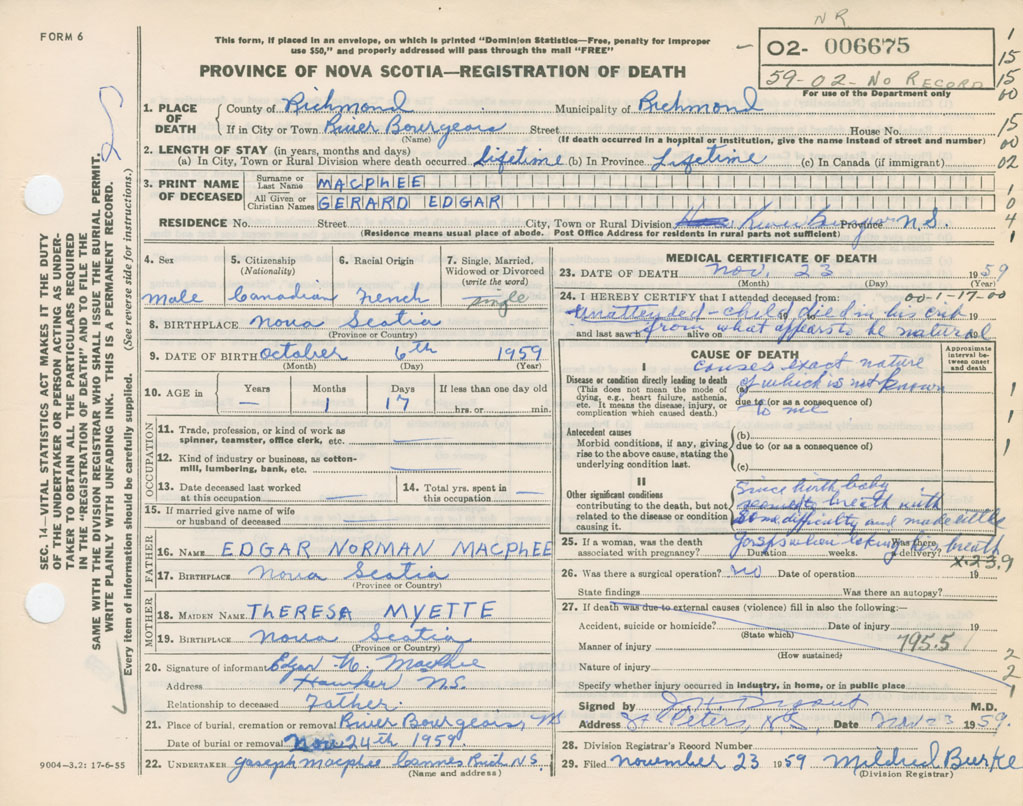 NR
FORM 6
This form, if placed in an envelope, on which is printed "Dominion Statistics—Free, penalty for improper
use $50," and properly addressed will pass through the mail "FREE"
02- 006675
59-02-No Record
For use of the Department only
PROVINCE OF NOVA SCOTIA—REGISTRATION OF DEATH
1. PLACE OF DEATH
County of Richmond Municipality of Richmond
If in City or Town River Bourgeois Street House No.
(Name) (If death occurred in a hospital or institution, give the name instead of street and number)
2. LENGTH OF STAY (in years, months and days)
(a) In City, Town or Rural Division where death occurred Lifetime (b) In Province Lifetime (c) In Canada (if immigrant)
3. PRINT NAME OF DECEASED
Surname or Last Name MACPHEE
All Given or Christian Names GERARD EDGAR
RESIDENCE No. Street City, Town or Rural Division River Bourgeois Province N.S.
(Residence means usual place of abode. Post Office Address for residents in rural parts not sufficient)
4. Sex 5. Citizenship (Nationality) 6. Racial Origin 7. Single, Married, Widowed or Divorced (write the word)
Male Canadian French single
8. BIRTHPLACE Nova Scotia
(Province or Country)
9. DATE OF BIRTH October 6th 1959
(Month) (Day) (Year)
10. AGE in Years Months Days If less than one day old
— 1 17 hrs. or min.
OCCUPATION
11. Trade, profession, or kind of work as spinner, teamster, office clerk, etc. —
12. Kind of industry or business, as cotton-mill, lumbering, bank, etc. —
13. Date deceased last worked at this occupation — 14. Total yrs. spent in this occupation —
15. If married give name of wife or husband of deceased —
FATHER
16. NAME EDGAR NORMAN MACPHEE
17. BIRTHPLACE Nova Scotia
(Province or Country)
MOTHER
18. MAIDEN NAME THERESA MYETTE
19. BIRTHPLACE Nova Scotia
(Province or Country)
20. Signature of informant Edgar N. MacPhee
Address N.S.
Relationship to deceased Father.
21. Place of burial, cremation or removal River Bourgeois, NS
Date of burial or removal Nov 24th 1959.
22. UNDERTAKER Joseph Macphee Cannes Rich N.S.
(Name and address)
MEDICAL CERTIFICATE OF DEATH
23. DATE OF DEATH Nov. 23 1959
(Month) (Day) (Year)
24. I HEREBY CERTIFY that I attended deceased from: 00-1-17-00
Unattended - child died in his crib 19
and last saw h alive on from what appears to be natural 19
CAUSE OF DEATH
Approximate interval between onset and death
causes exact nature
I
Disease or condition directly leading to death (a) of which is not known
(This does not mean the mode of dying, e.g., heart failure, asthenia, etc. It means the disease, injury, or complication which caused death.)
due to (or as a consequence of)
to me
Antecedent causes
Morbid conditions, if any, giving rise to the above cause, stating the underlying condition last.
(b)
due to (or as a consequence of)
(c)
II
Other significant conditions contributing to the death, but not related to the disease or condition causing it.
Since birth baby
seemed to breath with
some difficulty and made little
gasps when taking her breath
25. If a woman, was the death associated with pregnancy? Duration weeks. Was there a delivery?
x-23,9
26. Was there a surgical operation? No Date of operation 19
State findings Was there an autopsy?
27. If death was due to external causes (violence) fill in also the following:—
Accident, suicide or homicide? Date of injury 19
(State which)
795.5
Manner of injury
(How sustained)
Nature of injury
Specify whether injury occurred in industry, in home, or in public place
Signed by M.D.
Address St Peters, N.S. Date Nov 23 1959.
28. Division Registrar's Record Number
29. Filed November 23 1959 Mildred Burke
(Division Registrar)
9004—3.2: 17-6-55
SEC. 14—VITAL STATISTICS ACT MAKES IT THE DUTY
OF THE UNDERTAKER OR PERSON ACTING AS UNDER-
TAKER TO OBTAIN ALL THE PARTICULARS REQUIRED
IN THE "REGISTRATION OF DEATH" AND TO FILE THE
SAME WITH THE DIVISION REGISTRAR WHO SHALL ISSUE THE BURIAL PERMIT.
WRITE PLAINLY WITH UNFADING INK. THIS IS A PERMANENT RECORD.
Every item of information should be carefully supplied. (See reverse side for instructions.)
1
15
15
00
15
00
02
1
0
4
1
1
1
1
2
2
1